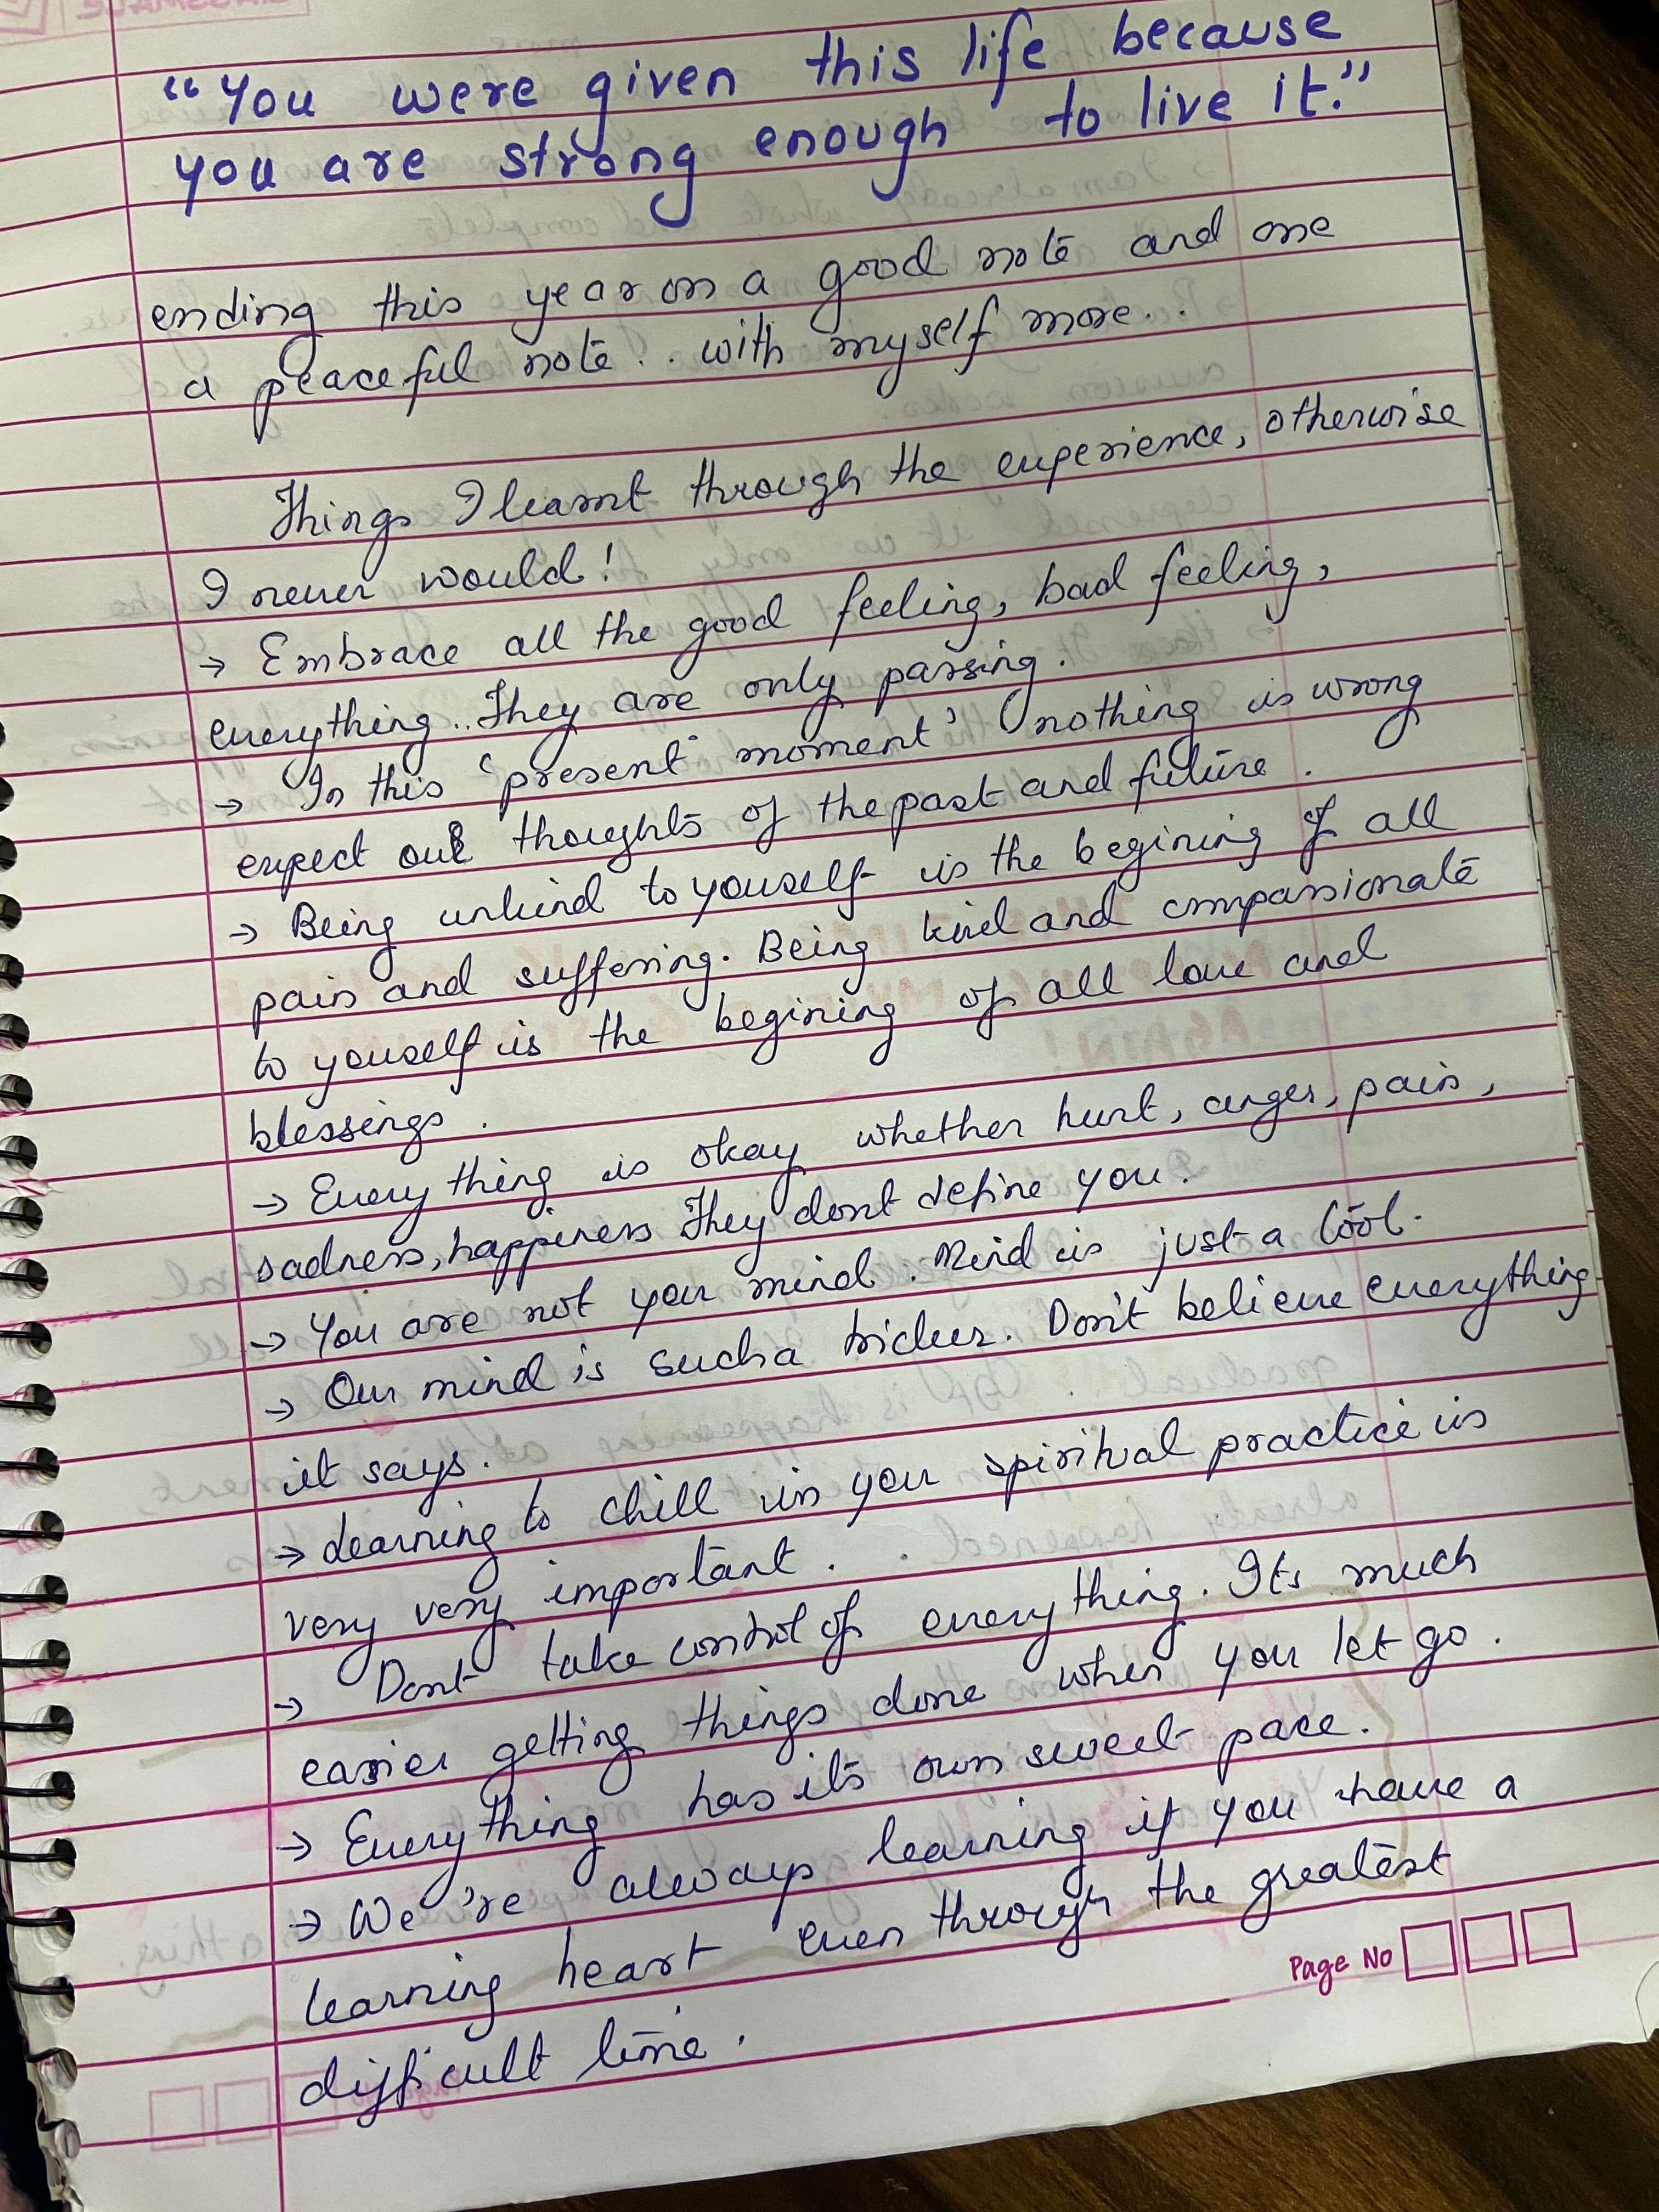 "You were given this life because
you are strong enough to live it."
ending this year on a good note and one
a peaceful note.. with myself more..
Things I learnt through the experience, otherwise
I never would!
→ Embrace all the good feeling, bad feeling,
everything.. They are only passing.
→ In this 'present moment' nothing is wrong
expect our thoughts of the past and future.
→ Being unkind to youself is the begining of all
pain and suffering. Being kind and compassionate
to youself is the begining of all love and
blessings.
→ Everything is okay whether hurt, anger, pain,
sadness, happiness They dont define you.
→ You are not your mind. Mind is just a tool.
→ Our mind is such a tricker. Don't believe everything
it says.
→ Learning to chill in your spiritual practice is
very very important.
→ Dont take control of everything. Its much
easier getting things done when you let go.
→ Everything has its own sweet pace.
→ We're always learning if you have a
learning heart even through the greatest
difficult time.
Page No